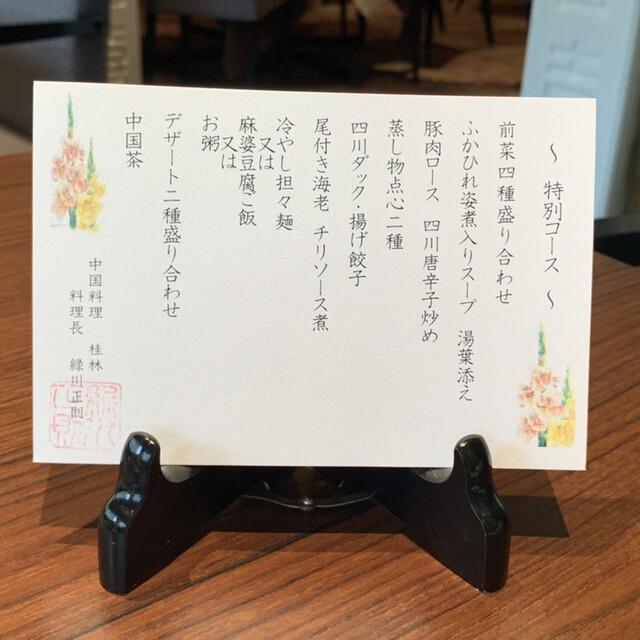 ～ 特別コース ～
前菜四種盛り合わせ
ふかひれ姿煮入りスープ 湯葉添え
豚肉ロース 四川唐辛子炒め
蒸し物点心二種
四川ダック・揚げ餃子
尾付き海老 チリソース煮
冷やし担々麺
又は
麻婆豆腐ご飯
又は
お粥
デザート二種盛り合わせ
中国茶
中国料理 桂林
料理長 緑川正則